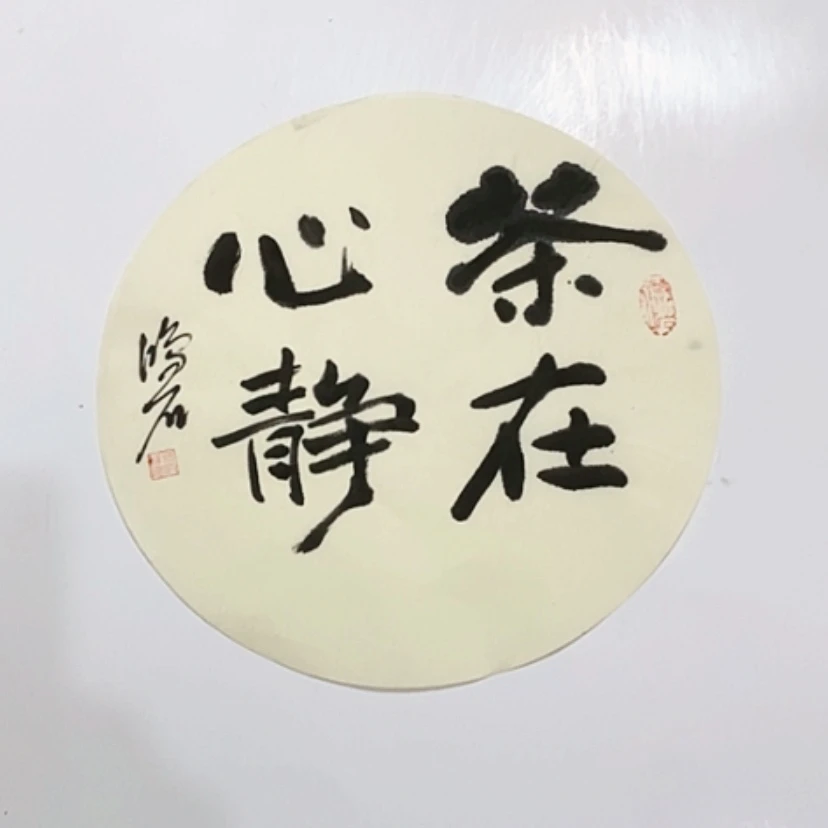 茶在
心静
鸿石